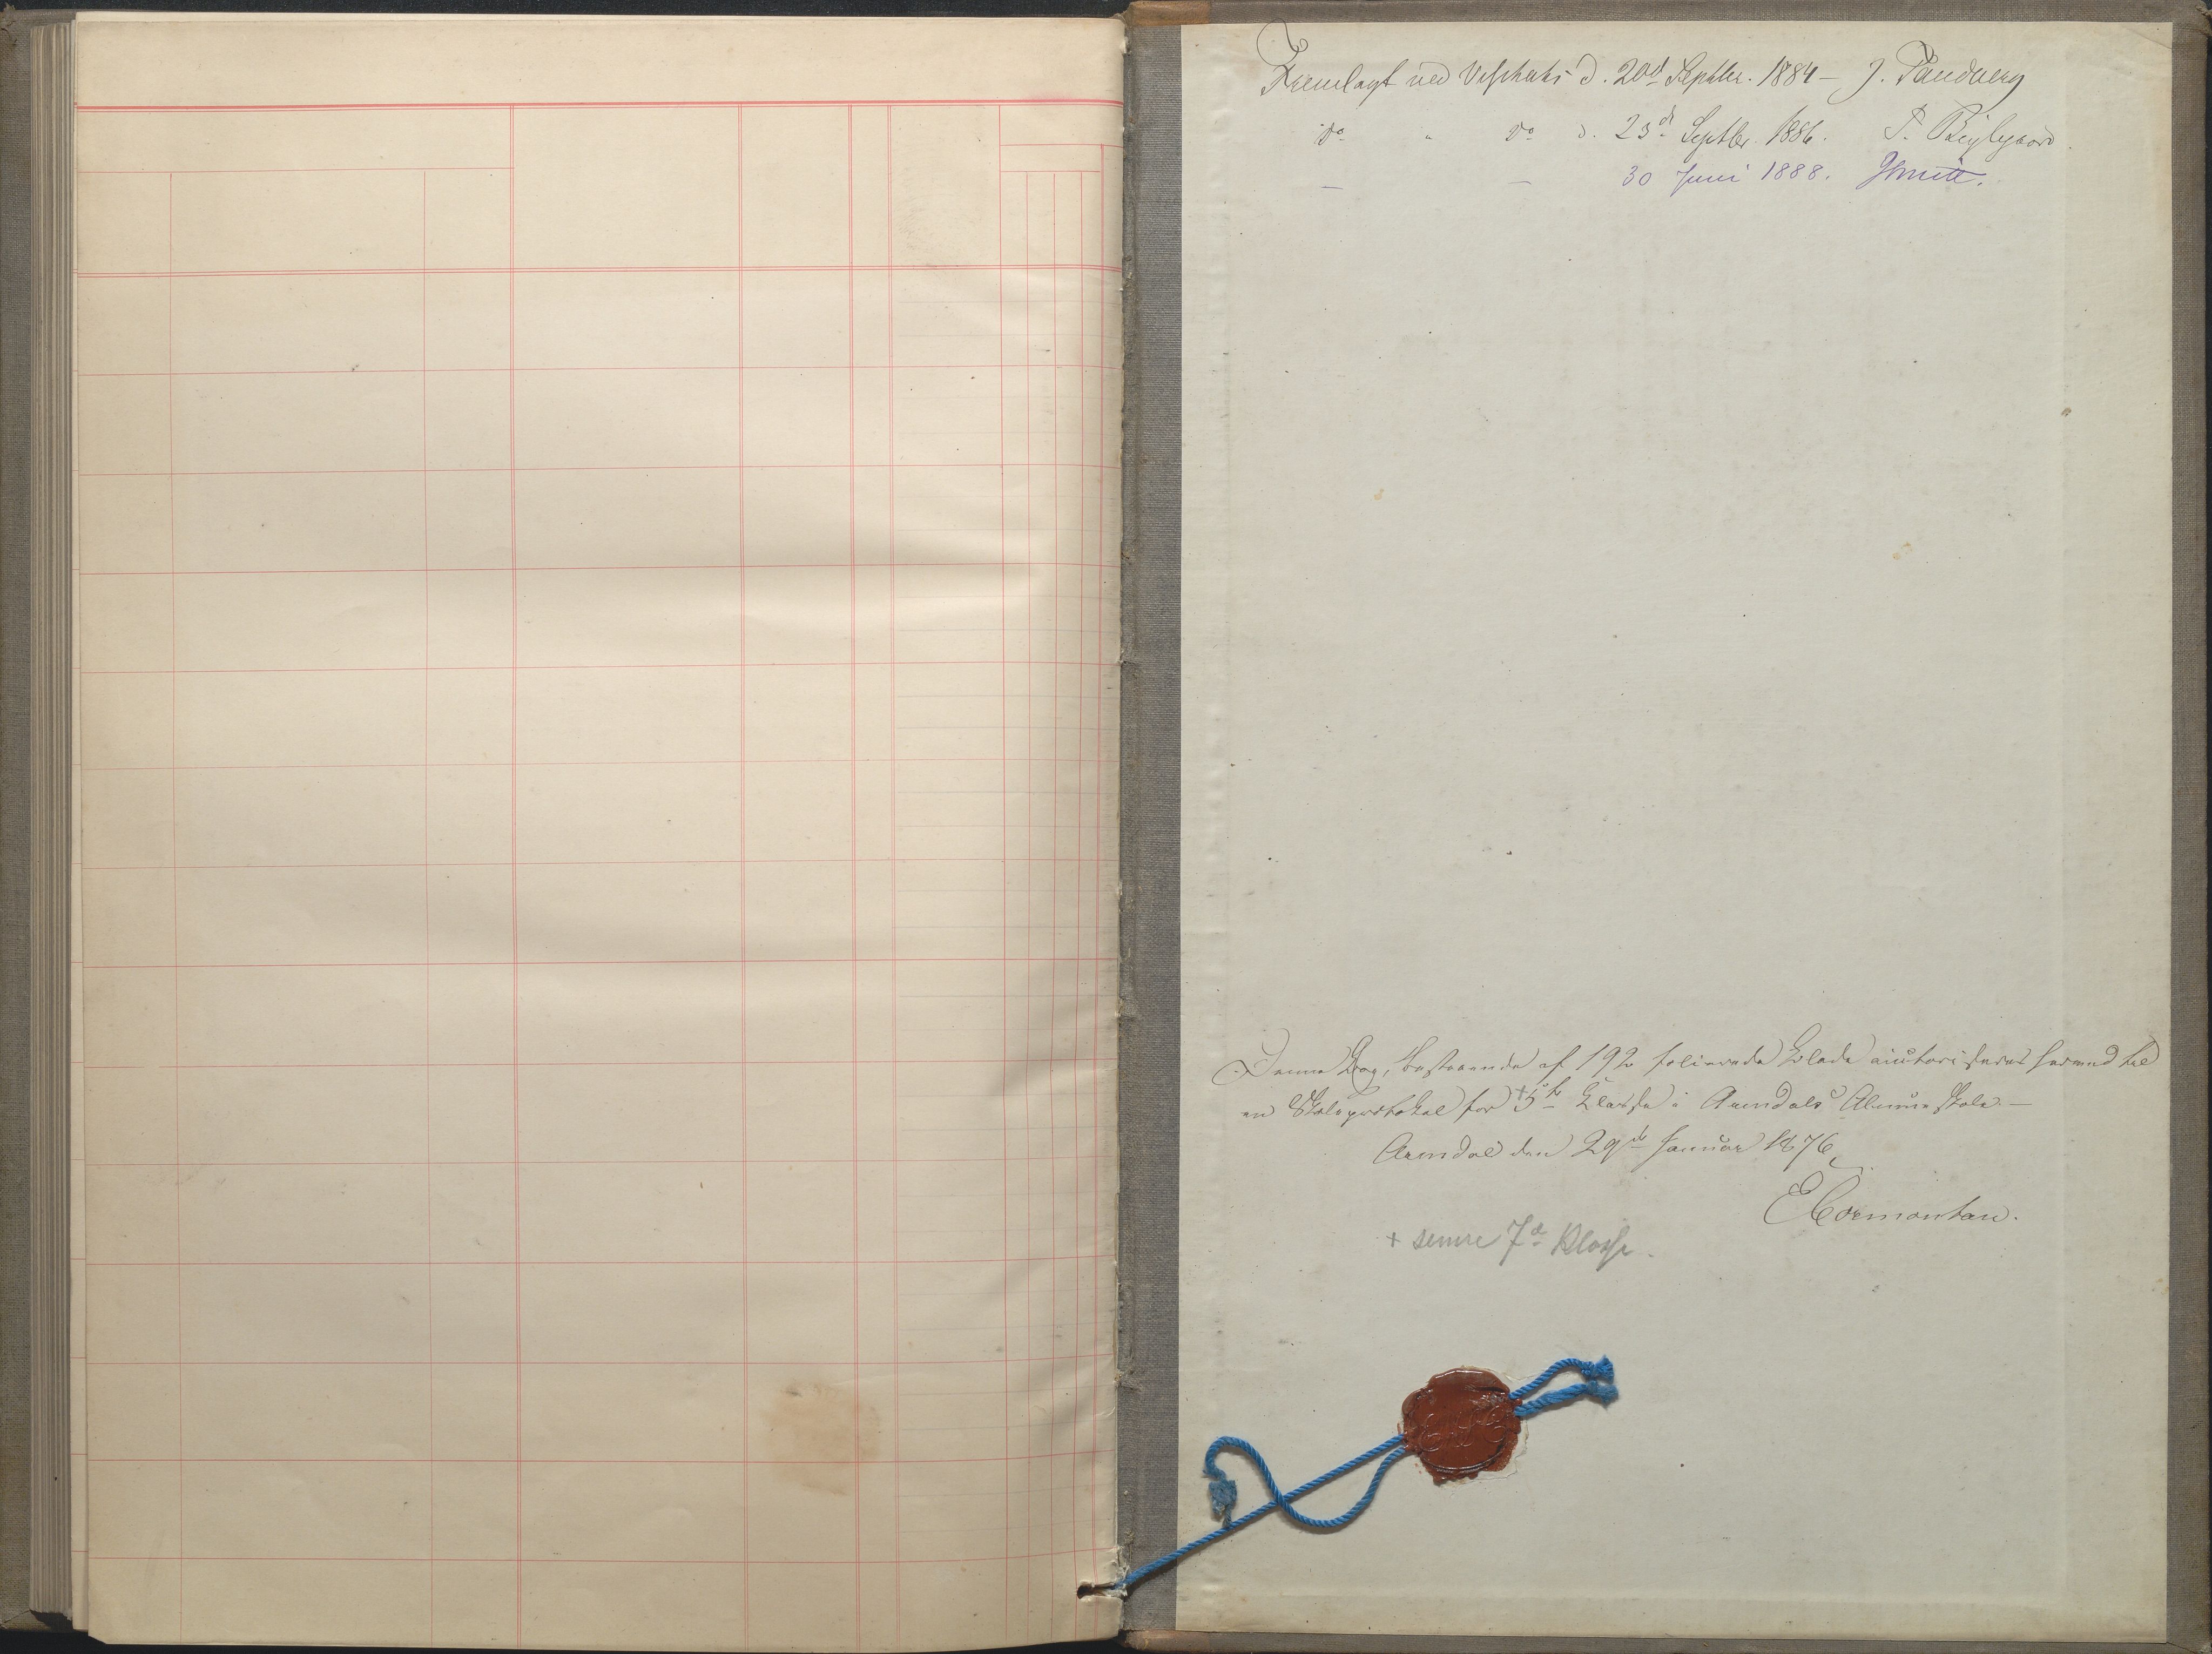 Fremlagt ved Vispitats d. 20d Septbr. 1884 – J.
do " do d. 23d Septbr. 1886. P.
– – 30 Juni 1888.
Denne Bog, bestaaende af 192 folierede Blade autoriseres herved til
en Skoleprotokol for +5te Klasse i Arendals Almueskole. –
Arendal den 29de Januar 1876
+ senere 7de Klasse.